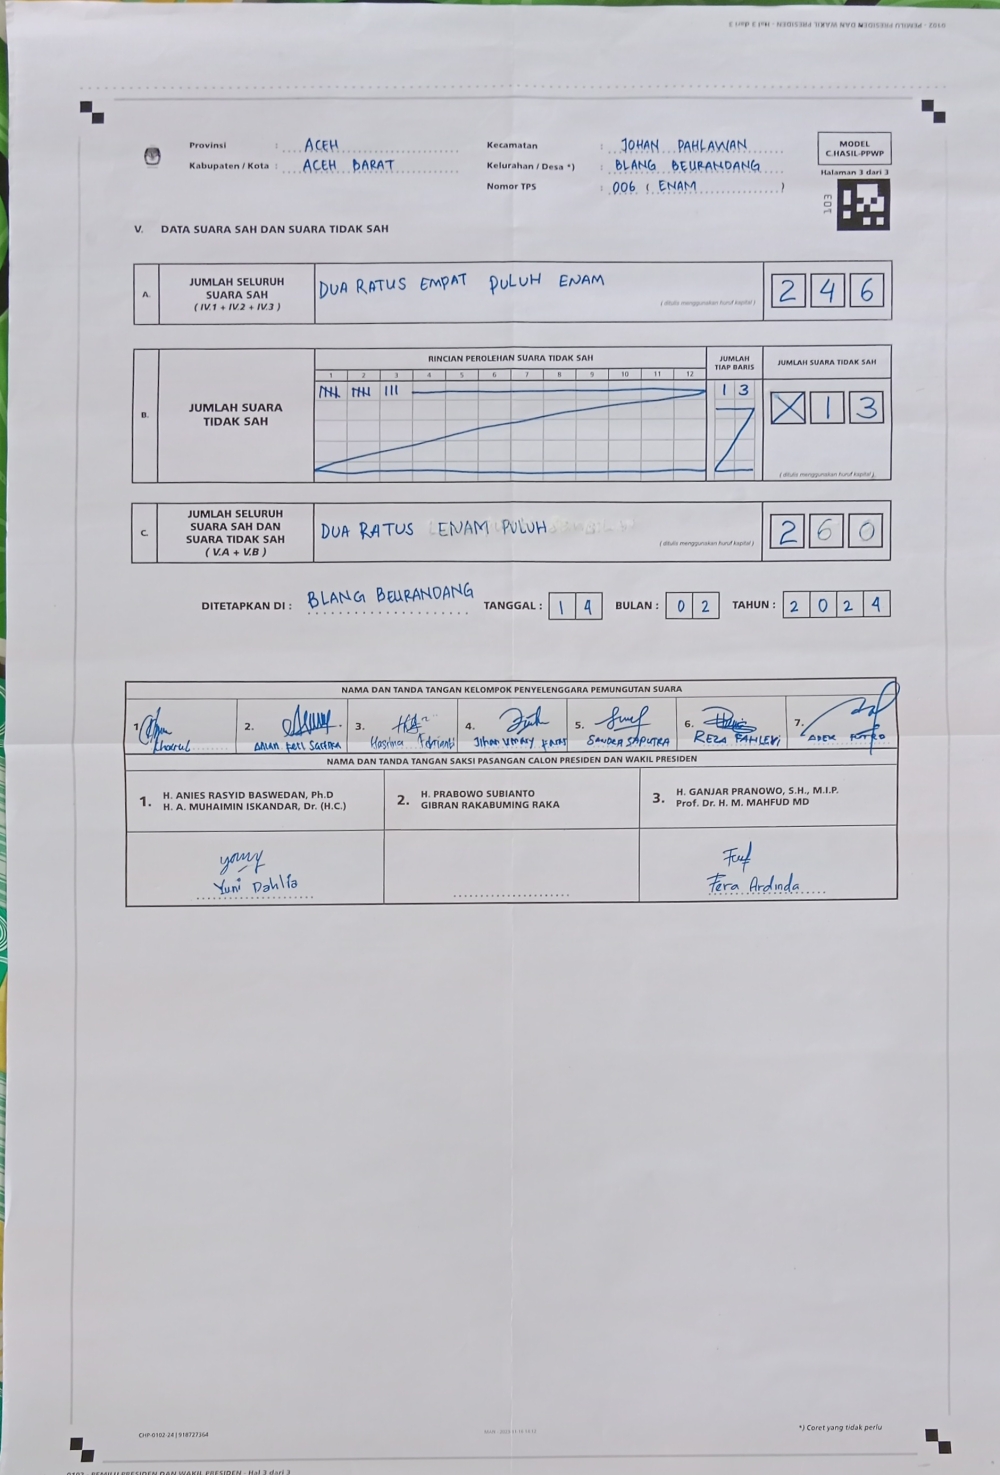 0102 - PEMILU PRESIDEN DAN WAKIL PRESIDEN - Hal 3 dari 3
Provinsi : ACEH
Kabupaten / Kota : ACEH BARAT
Kecamatan : JOHAN PAHLAWAN
Kelurahan / Desa *) : BLANG BEURANDANG
Nomor TPS : 006 ( ENAM )
MODEL
C.HASIL-PPWP
Halaman 3 dari 3
103
V. DATA SUARA SAH DAN SUARA TIDAK SAH
A. JUMLAH SELURUH SUARA SAH ( IV.1 + IV.2 + IV.3 ) DUA RATUS EMPAT PULUH ENAM ( ditulis menggunakan huruf kapital ) 2 4 6
B. JUMLAH SUARA TIDAK SAH
RINCIAN PEROLEHAN SUARA TIDAK SAH
1 2 3 4 5 6 7 8 9 10 11 12
JUMLAH TIAP BARIS
13
JUMLAH SUARA TIDAK SAH
X 1 3
( ditulis menggunakan huruf kapital )
C. JUMLAH SELURUH SUARA SAH DAN SUARA TIDAK SAH ( V.A + V.B ) DUA RATUS ENAM PULUH ( ditulis menggunakan huruf kapital ) 2 6 0
DITETAPKAN DI : BLANG BEURANDANG TANGGAL : 1 4 BULAN : 0 2 TAHUN : 2 0 2 4
NAMA DAN TANDA TANGAN KELOMPOK PENYELENGGARA PEMUNGUTAN SUARA
1. Khairul
2.
3. Hasrina
4. Jihan
5. SANDRA SAPUTRA
6. REZA FAHLEVI
7. ADEK PUTRO
NAMA DAN TANDA TANGAN SAKSI PASANGAN CALON PRESIDEN DAN WAKIL PRESIDEN
1. H. ANIES RASYID BASWEDAN, Ph.D
H. A. MUHAIMIN ISKANDAR, Dr. (H.C.)
2. H. PRABOWO SUBIANTO
GIBRAN RAKABUMING RAKA
3. H. GANJAR PRANOWO, S.H., M.I.P.
Prof. Dr. H. M. MAHFUD MD
Yuni Dahlia
Fera Ardinda
*) Coret yang tidak perlu
CHP-0102-24 | 918727364
0102 - PEMILU PRESIDEN DAN WAKIL PRESIDEN - Hal 3 dari 3